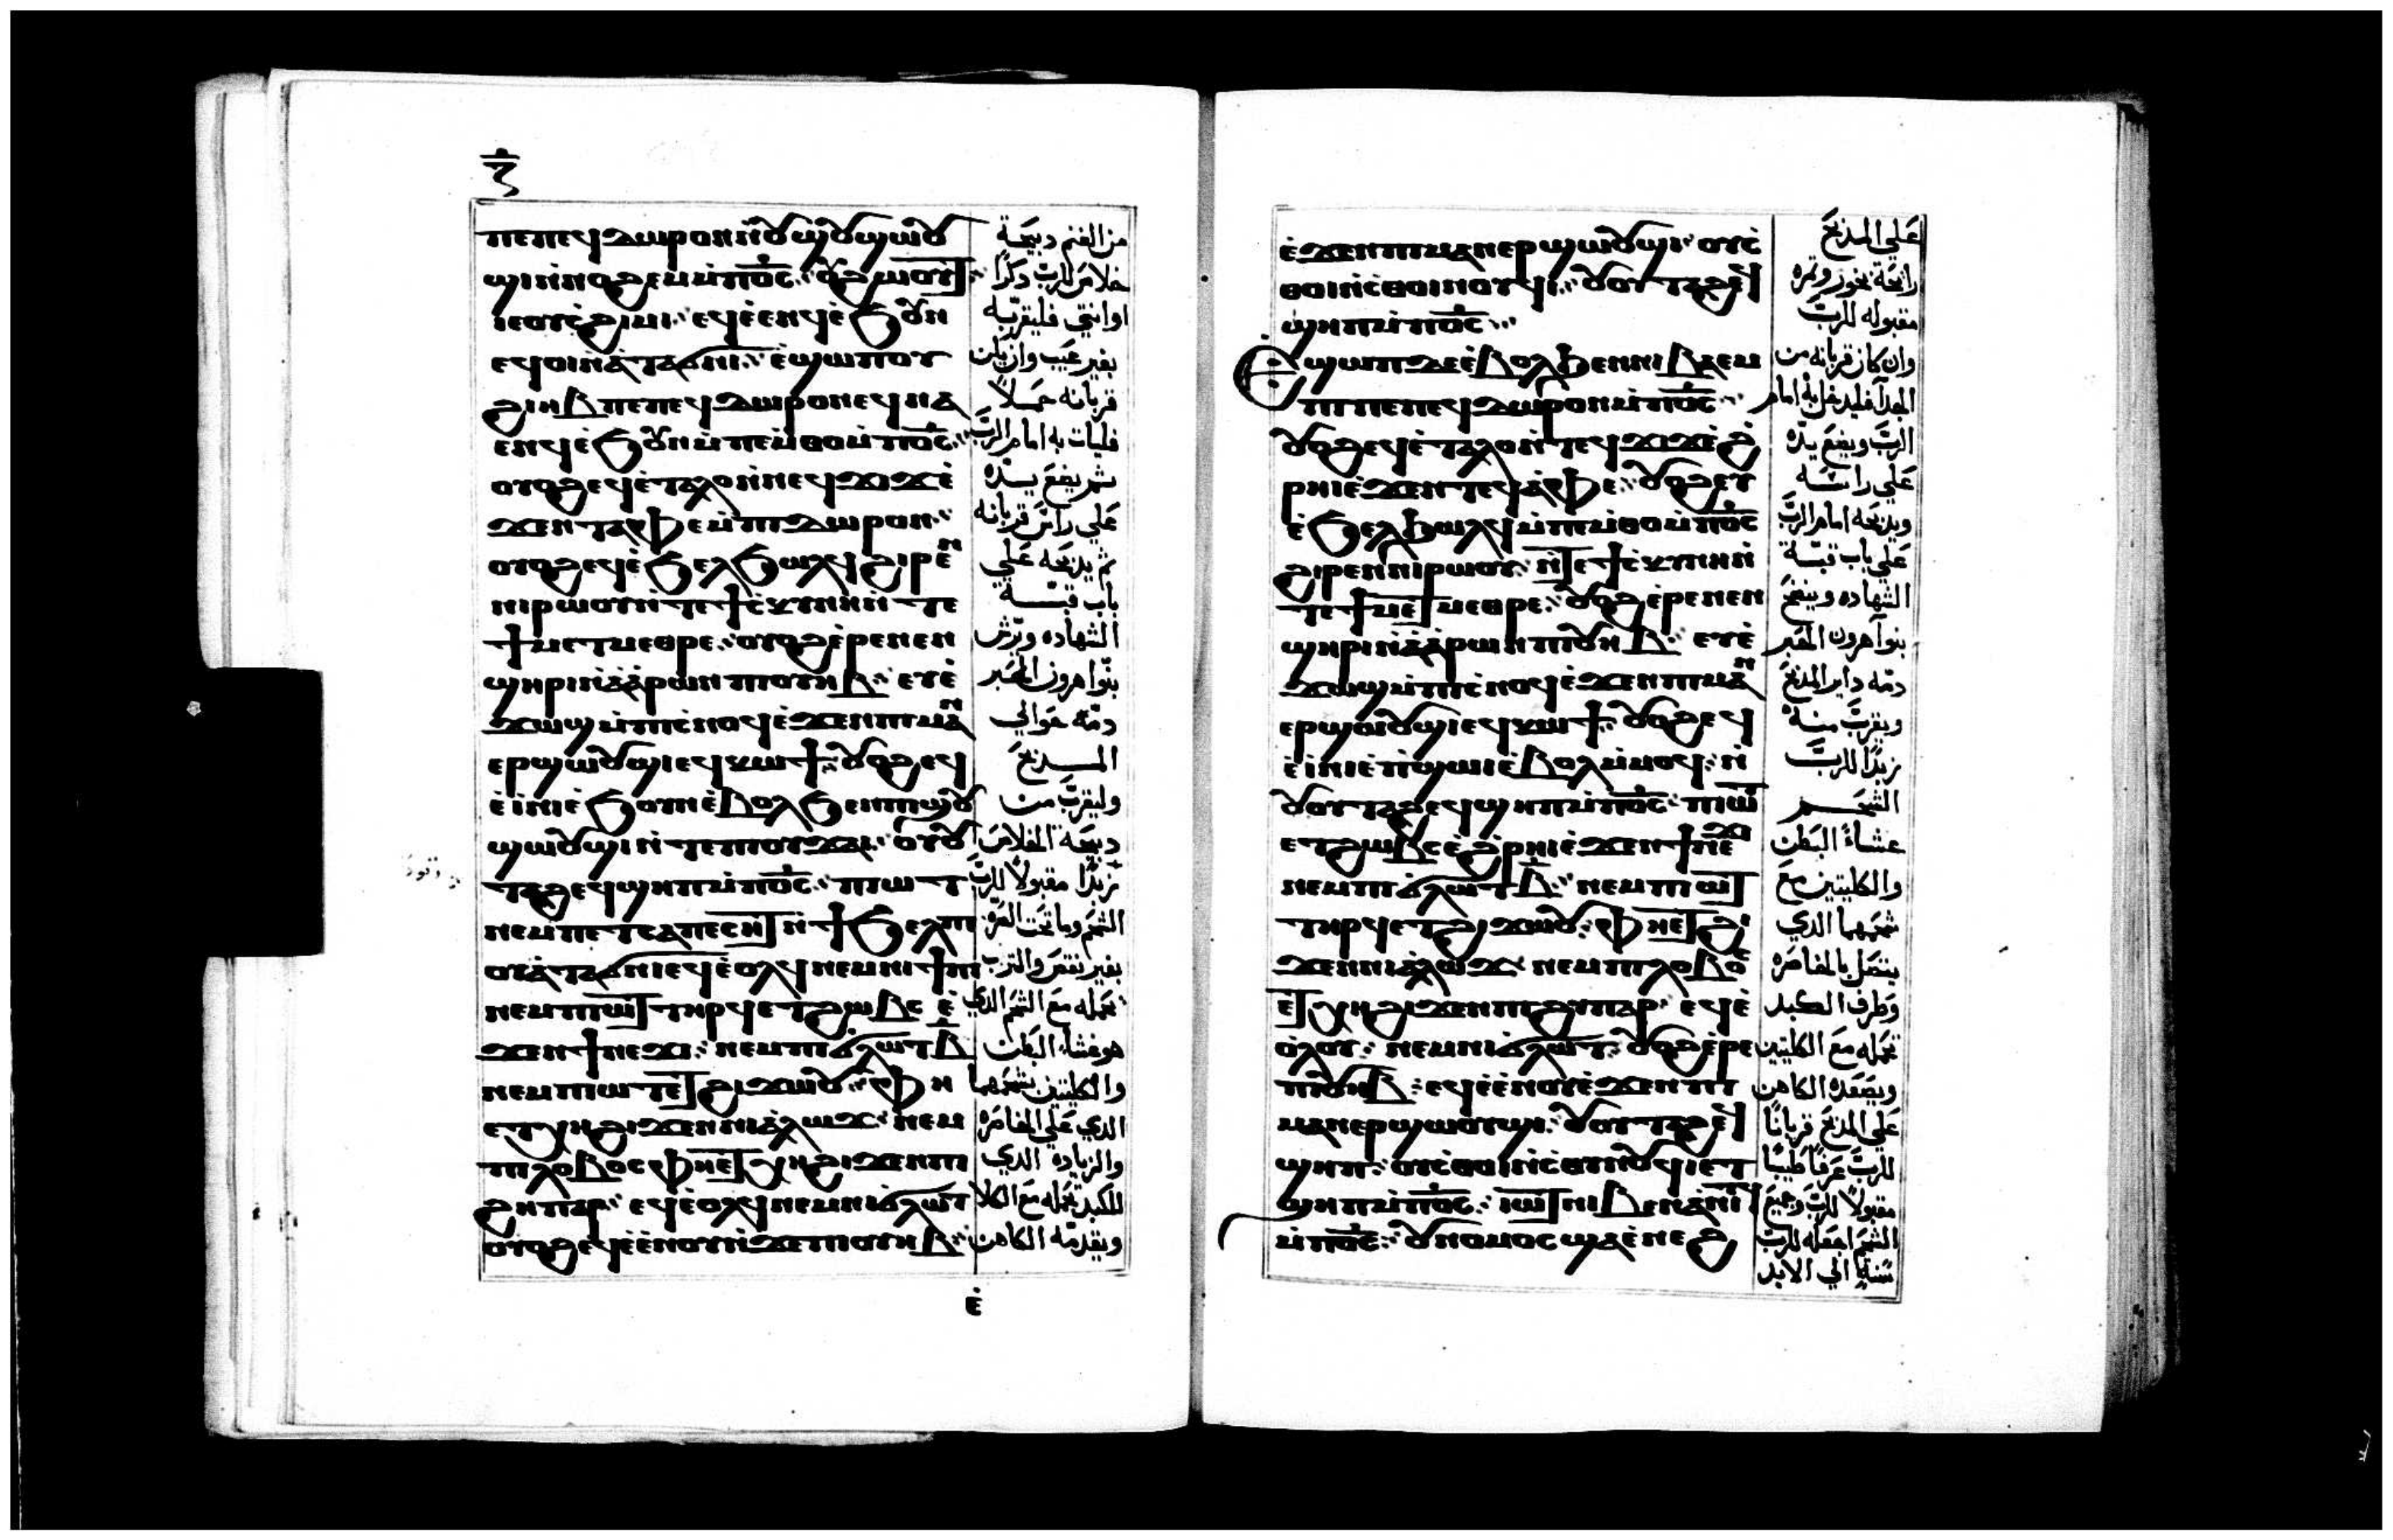 ⲡⲉⲡⲉϥⲇⲱⲣⲟⲛⲛ̀ⲟⲩϣⲟⲩϣⲱⲟⲩ
ϣⲓⲛ̀ⲛⲟϩⲉⲙⲙ̀ⲡⲟ̅ⲥ̅
ⲓⲉⲟⲩⲥ̀ϩⲓⲙⲓ ⲉϥⲉ̀ⲉⲛϥⲉ̀ϧⲟⲩⲛ
ⲉϥⲟⲓⲛ̀ⲁ̀ⲧⲁϭⲛⲓ ⲉ̀ϣⲱⲡⲟⲩ
ϩⲓⲏⲃⲡⲉⲡⲉϥⲇⲱⲣⲟⲛⲉϥⲛⲁ
ⲉⲛϥⲉ̀ϧⲟⲩⲛⲙ̀ⲡⲉⲙ̀ⲑⲟⲙ̀ⲡⲟ̅ⲥ̅
ⲟⲩⲟϩⲉϥⲉ̀ⲧⲁⲗⲟⲛ̀ⲛⲉϥϫⲓϫⲉ̀
ϫⲉⲛⲧⲁⲫⲉⲙ̀ⲡⲓⲇⲱⲣⲟⲛ
ⲟⲩⲟϩⲉϥⲉ̀ϧⲉⲗϧⲱⲗϥϩⲓⲣⲉⲛ
ⲛⲓⲣⲱⲟⲩⲛ̀ⲧⲉϯⲥ̀ⲕⲩⲛⲏⲛ̀ⲧⲉ
ϯⲙⲉⲧⲙⲉⲑⲣⲉ ⲟⲩⲟϩⲉ̀ⲣⲉⲛⲉⲛ
ϣⲏⲣⲓⲛ̀ⲁ̀ⲁ̀ⲣⲱⲛⲡⲓⲟⲩⲏⲃ ⲉⲩⲉ̀
ϫⲱϣⲙ̀ⲡⲓⲥ̀ⲛⲟϥⲉ̀ϫⲉⲛⲡⲓⲙⲁⲛ
ⲉⲣϣⲱⲟⲩϣⲓⲉϥⲕⲱϯ ⲟⲩⲟϩⲉϥ
ⲉ̀ⲓ̀ⲛⲓⲉ̀ϧⲟⲩⲛⲉ̀ⲃⲟⲗϧⲉⲛⲡⲓϣⲟⲩ
ϣⲱⲟⲩϣⲓⲛ̀ⲧⲉⲡⲟⲩϫⲁⲓ ⲟⲩⲟⲩ
ⲧⲁϩⲉϥϣⲏⲡⲙ̀ⲡⲟ̅ⲥ̅ ⲡⲓⲱⲧ
ⲛⲉⲙⲡⲉⲧⲥⲁⲡⲉⲥⲏⲧⲛ̀ϯϧⲉⲗⲡⲓ
ⲟⲩⲁ̀ⲧⲁϭⲛⲓⲉϥⲉ̀ⲟⲗϥⲛⲉⲙⲛⲓϯⲡⲓ
ⲛⲉⲙⲡⲓⲱⲧⲧⲏⲣϥⲉⲧϩⲱⲃⲥⲉ̀
ϫⲉⲛϯⲛⲉϫⲓ ⲛⲉⲙⲡⲓϭⲗⲱⲧⲃ̅
ⲛⲉⲙⲡⲓⲱⲧⲉⲧϩⲓϫⲱⲟⲩ ⲫⲏ
ⲉⲧⲭⲏϩⲓϫⲉⲛⲛⲓⲁ̀ⲗⲱϫ ⲛⲉⲙ
ⲡⲓⲗⲟⲃⲟⲥⲫⲏⲉⲧⲭⲏϩⲓϫⲉⲛⲡⲓ
ϩⲏⲡⲁⲣ ⲉϥⲉ̀ⲟⲗϥⲛⲉⲙⲛⲓϭⲗⲱⲧ
ⲟⲩⲟϩⲉϥⲉ̀ⲉ̀ⲛⲟⲩⲛ̀ϫⲉⲡⲓⲟⲩⲏⲃ
ⲉ̀
من الغنم دبيحة
خلاص للرب دكرًا
او انتي فليقربه
بغير عيب وان يكن
قربانه حملاً
فليات به امام الرب
ثم يضع يده
علي راس قربانه
ثم يدبحه علي
باب قبة
الشهاده ويرش
بنوا هرون الحبر
دمه حوالي
المدبح
وليقرب من
دبيحة الخلاص
مقبولاً للرب
والكليتين شحمها
الدي علي
والزياده الدي
ويقدمه الكاهن
ⲉ̀ϫⲉⲛⲡⲓⲙⲁⲛⲉⲣϣⲱⲟⲩϣⲓ ⲟⲩⲥ̀
ⲑⲟⲓⲛ̀ⲥ̀ⲑⲟⲓⲛⲟⲩϥⲓ ⲟⲩⲟⲩⲧⲁϩⲉϥ
ϣⲏⲡⲙ̀ⲡⲟ̅ⲥ̅
Ⲉ̀ϣⲱⲡⲇⲉⲉ̀ⲃⲟⲗϧⲉⲛⲛⲓⲃⲁⲉⲙ
ⲡⲓⲡⲉⲡⲉϥⲇⲱⲣⲟⲛⲙ̀ⲡⲟ̅ⲥ̅
ⲟⲩⲟϩⲉϥⲉ̀ⲧⲁⲗⲟⲛ̀ⲧⲉϥϫⲓϫⲉ̀ϩ̀
ⲣⲏⲓⲉ̀ϫⲉⲛⲧⲉϥⲁ̀ⲫⲉ ⲟⲩⲟϩⲉⲩ
ⲉ̀ϧⲉⲗϧⲱⲗϥⲙ̀ⲡⲙ̀ⲑⲟⲙ̀ⲡⲟ̅ⲥ̅
ϩⲓⲣⲉⲛⲛⲓⲣⲱⲟⲩ ⲛ̀ⲧⲉϯⲥ̀ⲕⲩⲛⲏⲛ̀
ⲧⲉϯⲙⲉⲧⲙⲉⲑⲣⲉ ⲟⲩⲟϩⲉ̀ⲣⲉⲛⲉⲛ
ϣⲏⲣⲓⲛ̀ⲁ̀ⲁ̀ⲣⲱⲛⲡⲓⲟⲩⲏⲃ ⲉⲩⲉ̀
ϫⲱϣⲙ̀ⲡⲓⲥ̀ⲛⲟϥⲉ̀ϫⲉⲛⲡⲓⲙⲁⲛ
ⲉⲣϣⲱⲟⲩϣⲓⲉϥⲕⲱϯ ⲟⲩⲟϩⲉϥ
ⲉ̀ⲓ̀ⲛⲓⲉ̀ⲡ̀ϣⲱⲓⲉ̀ⲃⲟⲗⲙ̀ⲙⲟϥ ⲛ̀
ⲟⲩⲟⲩⲧⲁϩⲉϥϣⲏⲡⲙ̀ⲡⲟ̅ⲥ̅ ⲡⲓⲱⲧ
ⲉⲧϩⲱⲃⲥⲉ̀ϩ̀ⲣⲏⲓⲉ̀ϫⲉⲛϯⲛⲉϫⲓ
ⲛⲉⲙⲡⲓϭⲗⲱⲧⲃ̅ ⲛⲉⲙⲡⲓⲱⲧ
ⲧⲏⲣϥⲉⲧϩⲓϫⲱⲟⲩ ⲫⲏⲉⲧϩⲓ
ϫⲉⲛⲛⲓⲁ̀ⲗⲱϫ ⲛⲉⲙⲡⲓⲗⲟⲃⲟⲥ
ⲉⲧⲭⲏϩⲓϫⲉⲛⲡⲓϩⲏⲡⲁⲣ ⲉϥⲉ̀
ⲟ̀ⲗⲟⲩ ⲛⲉⲙⲛⲓϭⲗⲱⲧ ⲟⲩⲟϩⲉ̀ⲣⲉ
ⲡⲓⲟⲩⲏⲃ ⲉϥⲉ̀ⲉ̀ⲛⲟⲩⲉ̀ϫⲉⲛⲡⲓ
ⲙⲁⲛⲉⲣϣⲱⲟⲩϣⲓ ⲟⲩⲟⲩⲧⲁϩⲉϥ
ϣⲏⲡ ⲟⲩⲥ̀ⲑⲟⲓⲛ̀ⲥ̀ⲑⲛⲟⲩϥⲓⲉⲧ
ϣⲏⲡⲙ̀ⲡⲟ̅ⲥ̅ ⲓⲱⲧⲛⲓⲃⲉⲛⲁ̀ⲛⲓⲧ
ⲙ̀ⲡⲟ̅ⲥ̅ ⲟⲩⲛⲟⲙⲟⲥϣⲁⲉ̀ⲛⲉϩ
علي المدبح
رايحة بخور وتمره
مقبوله للرب
وان كان قربانه من
الرب ويضع يده
علي راسه
ويدبحه امام الرب
علي باب قبة
الشهاده وينضح
بنوا هرون الحبر
دمه داير المدبح
ويقرب منه
زبدًا للرب
الشحم
عشاء البطن
والكليتين مع
شحمهما الدي
يتصل بالخاصره
وطرف الكبد
تحمله مع الكليتين
ويصعده الكاهن
علي المدبح قربانًا
للرب عرفًا طيبًا
مقبولاً للرب وجميع
الشحم اجعله للرب
سنةٍ الي الابد